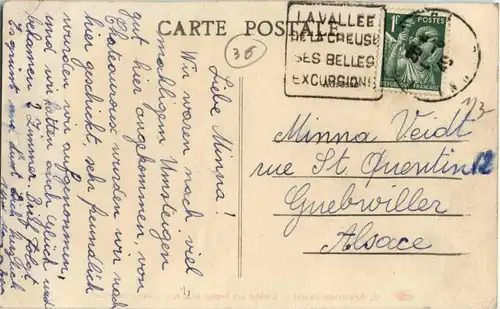 CARTE POSTALE
36
LA VALLEE
DE LA CREUSE
SES BELLES
EXCURSIONS
1F POSTES
REPUBLIQUE FRANÇAISE
Liebe Minna!
Wir waren nach viel-
maligem Umsteigen
gut hier angekommen, von
Chateauroux wurden wir nach
hier geschickt, sehr freundlich
wurden wir aufgenommen,
und wir hatten auch Glück und
bekamen 2 Zimmer. Bald folgt
Es grüsst und küsst Dich herzlich
Minna Veidt
rue St. Quentin 12
Guebwiller
Alsace